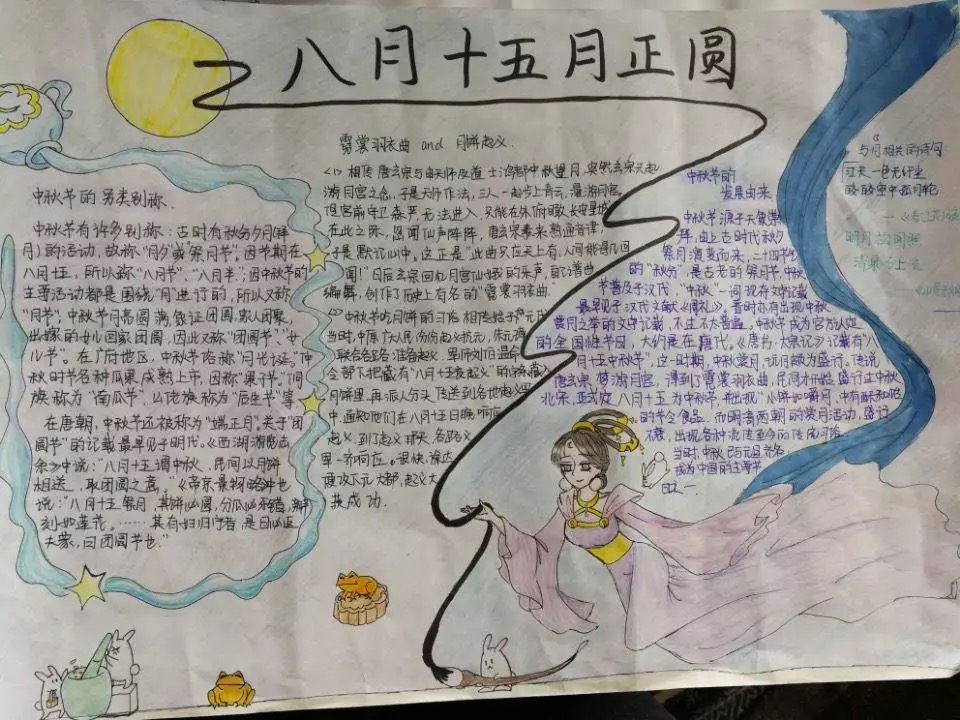 八月十五月正圆
中秋节的另类别称.
中秋节有许多别称：古时有秋分夕月(拜
月)的活动，故称“月夕”或“祭月节”。因节期在
八月十五，所以称“八月节”、“八月半”；因中秋节的
主要活动都是围绕“月”进行的，所以又称
“月节”；中秋节月亮圆满，象征团圆，家人团聚，
出嫁的女儿回家团圆，因此又称“团圆节”、“女
儿节”。在广府地区，中秋节俗称“月光诞。”仲
秋时节各种瓜果成熟上市，因称“果子节”。侗
族称为“南瓜节”，仫佬族称为“后生节”等
在唐朝，中秋节还被称为“端正月”。关于“团
圆节”的记载最早见于明代。《西湖游览志
余》中说：“八月十五谓中秋，民间以月饼
相送，取团圆之意”。《帝京景物略》中也
说：“八月十五祭月，其饼必圆，分瓜必牙错，瓣
刻如莲花。……其有妇归宁者，是日必返
夫家，曰团圆节也.”
霓裳羽衣曲 and 月饼起义.
<1> 相传唐玄宗与申天师及道士鸿都中秋望月，突然玄宗兴起
游月宫之念，于是天师作法，三人一起步上青云，漫游月宫。
但宫前守卫森严，无法进入，只能在外俯瞰长安皇城
在此之际，忽闻仙声阵阵，唐玄宗素来熟通音律，
于是默记心中。这正是“此曲只应天上有，人间能得几回
闻！”日后玄宗回忆月宫仙娥的乐声，自己谱曲
编舞，创作了历史上有名的“霓裳羽衣曲.
中秋节吃月饼的习俗相传始于元代
当时，中原广大人民纷纷起义抗元，朱元璋
联合各路准备起义.军师刘伯温命
令部下把藏有“八月十五夜起义”的
月饼里，再派人分头传送到各地起义军
中，通知他们在八月十五日晚响应
起义，到了起义那天，各路义
军一齐响应。很快，徐达
便攻下元大都，起义大
获成功.
中秋节的
发展由来
中秋节源于天象崇
拜，由上古时代秋夕
祭月演变而来，二十四节气
的“秋分”，是古老的“祭月节”，中秋
节普及于汉代，“中秋”一词现存文字记载
最早见于汉代文献《周礼》。晋时亦有出现中秋
赏月之举的文字记载，不过不太普遍，中秋节成为官方认定
的全国性节日，大约是在唐代，《唐书·太宗记》记载有“八
月十五中秋节”，这一时期，中秋赏月、玩月颇为盛行，传说
唐玄宗梦游月宫，得到了霓裳羽衣曲，民间才开始盛行过中秋
北宋，正式定八月十五为中秋节，并出现“小饼如嚼月，中有酥和饴
的节令食品，而明清两朝的赏月活动，盛行
不衰，出现各种流传至今的传统习俗，
当时，中秋已与元旦齐名，
成为中国的主要节
日之一.
与月相关的诗句:
江天一色无纤尘
皎皎空中孤月轮
明月松间照
清泉石上流